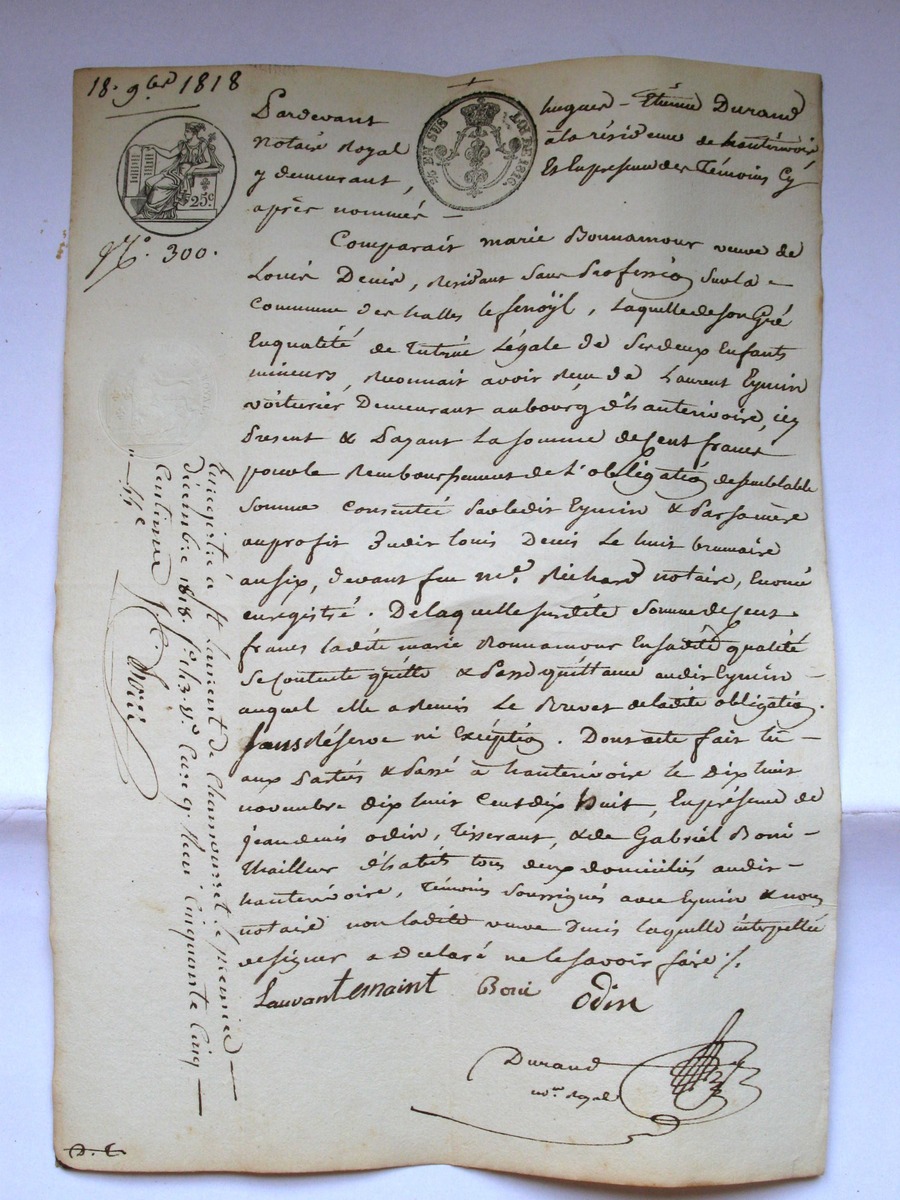 18. 9bre 1818
Pardevant hugues - Etienne Durand
notaire Royal à la résidence de hauterivoire
y demeurant, Et En presence des Témoins Cy
après nommés -
EN SUS
LOI DE 1816.
25c
No. 300.
Comparait marie Bonnamour veuve de
Louis Denis, Residant Sans Profession Sur la
Commune des halles le fenoÿl, Laquelle de Son Gré
En qualité de Tutrice Légale de Ses deux Enfants
mineurs, Reconnait avoir Reçu de Laurent Eymin
voiturier Demeurant au bourg d'hauterivoire, icy
Present & Payant La Somme de Cent francs
pour le Remboursement de L'obligation de semblable
Somme Consentie Par ledit Eymin & Par Sa mère
au profit dudit Louis Denis Le huit brumaire
an six, devant feu me. Richard notaire, Enoncé
enregistré. De laquelle susdite Somme de Cent
francs ladite marie Bonnamour En sadite qualité
Se Contente quitte & Passe quittance audit Eymin
auquel elle a Remis Le Brevet de ladite obligation.
Sans Réserve ni Exéption. Dont acte fait lu
aux Parties & Passé à hauterivoire le dix huit
novembre dix huit Cent dix huit, En présence de
jean denis odin, Tisserant, & de Gabriel Boni
Thailleur d'habits tous deux domiciliés audit
hauterivoire, Témoins Soussignés avec Eymin & nous
notaire non ladite veuve Denis laquelle interpellée
de signer a déclaré ne le savoir faire ./.
Boni
odin
Durand
nore. Royal
Enregistré à St Laurent de Chamousset le premier
décembre 1818. fo 143. vo. Case 9. Reçu Cinquante Cinq
Centimes